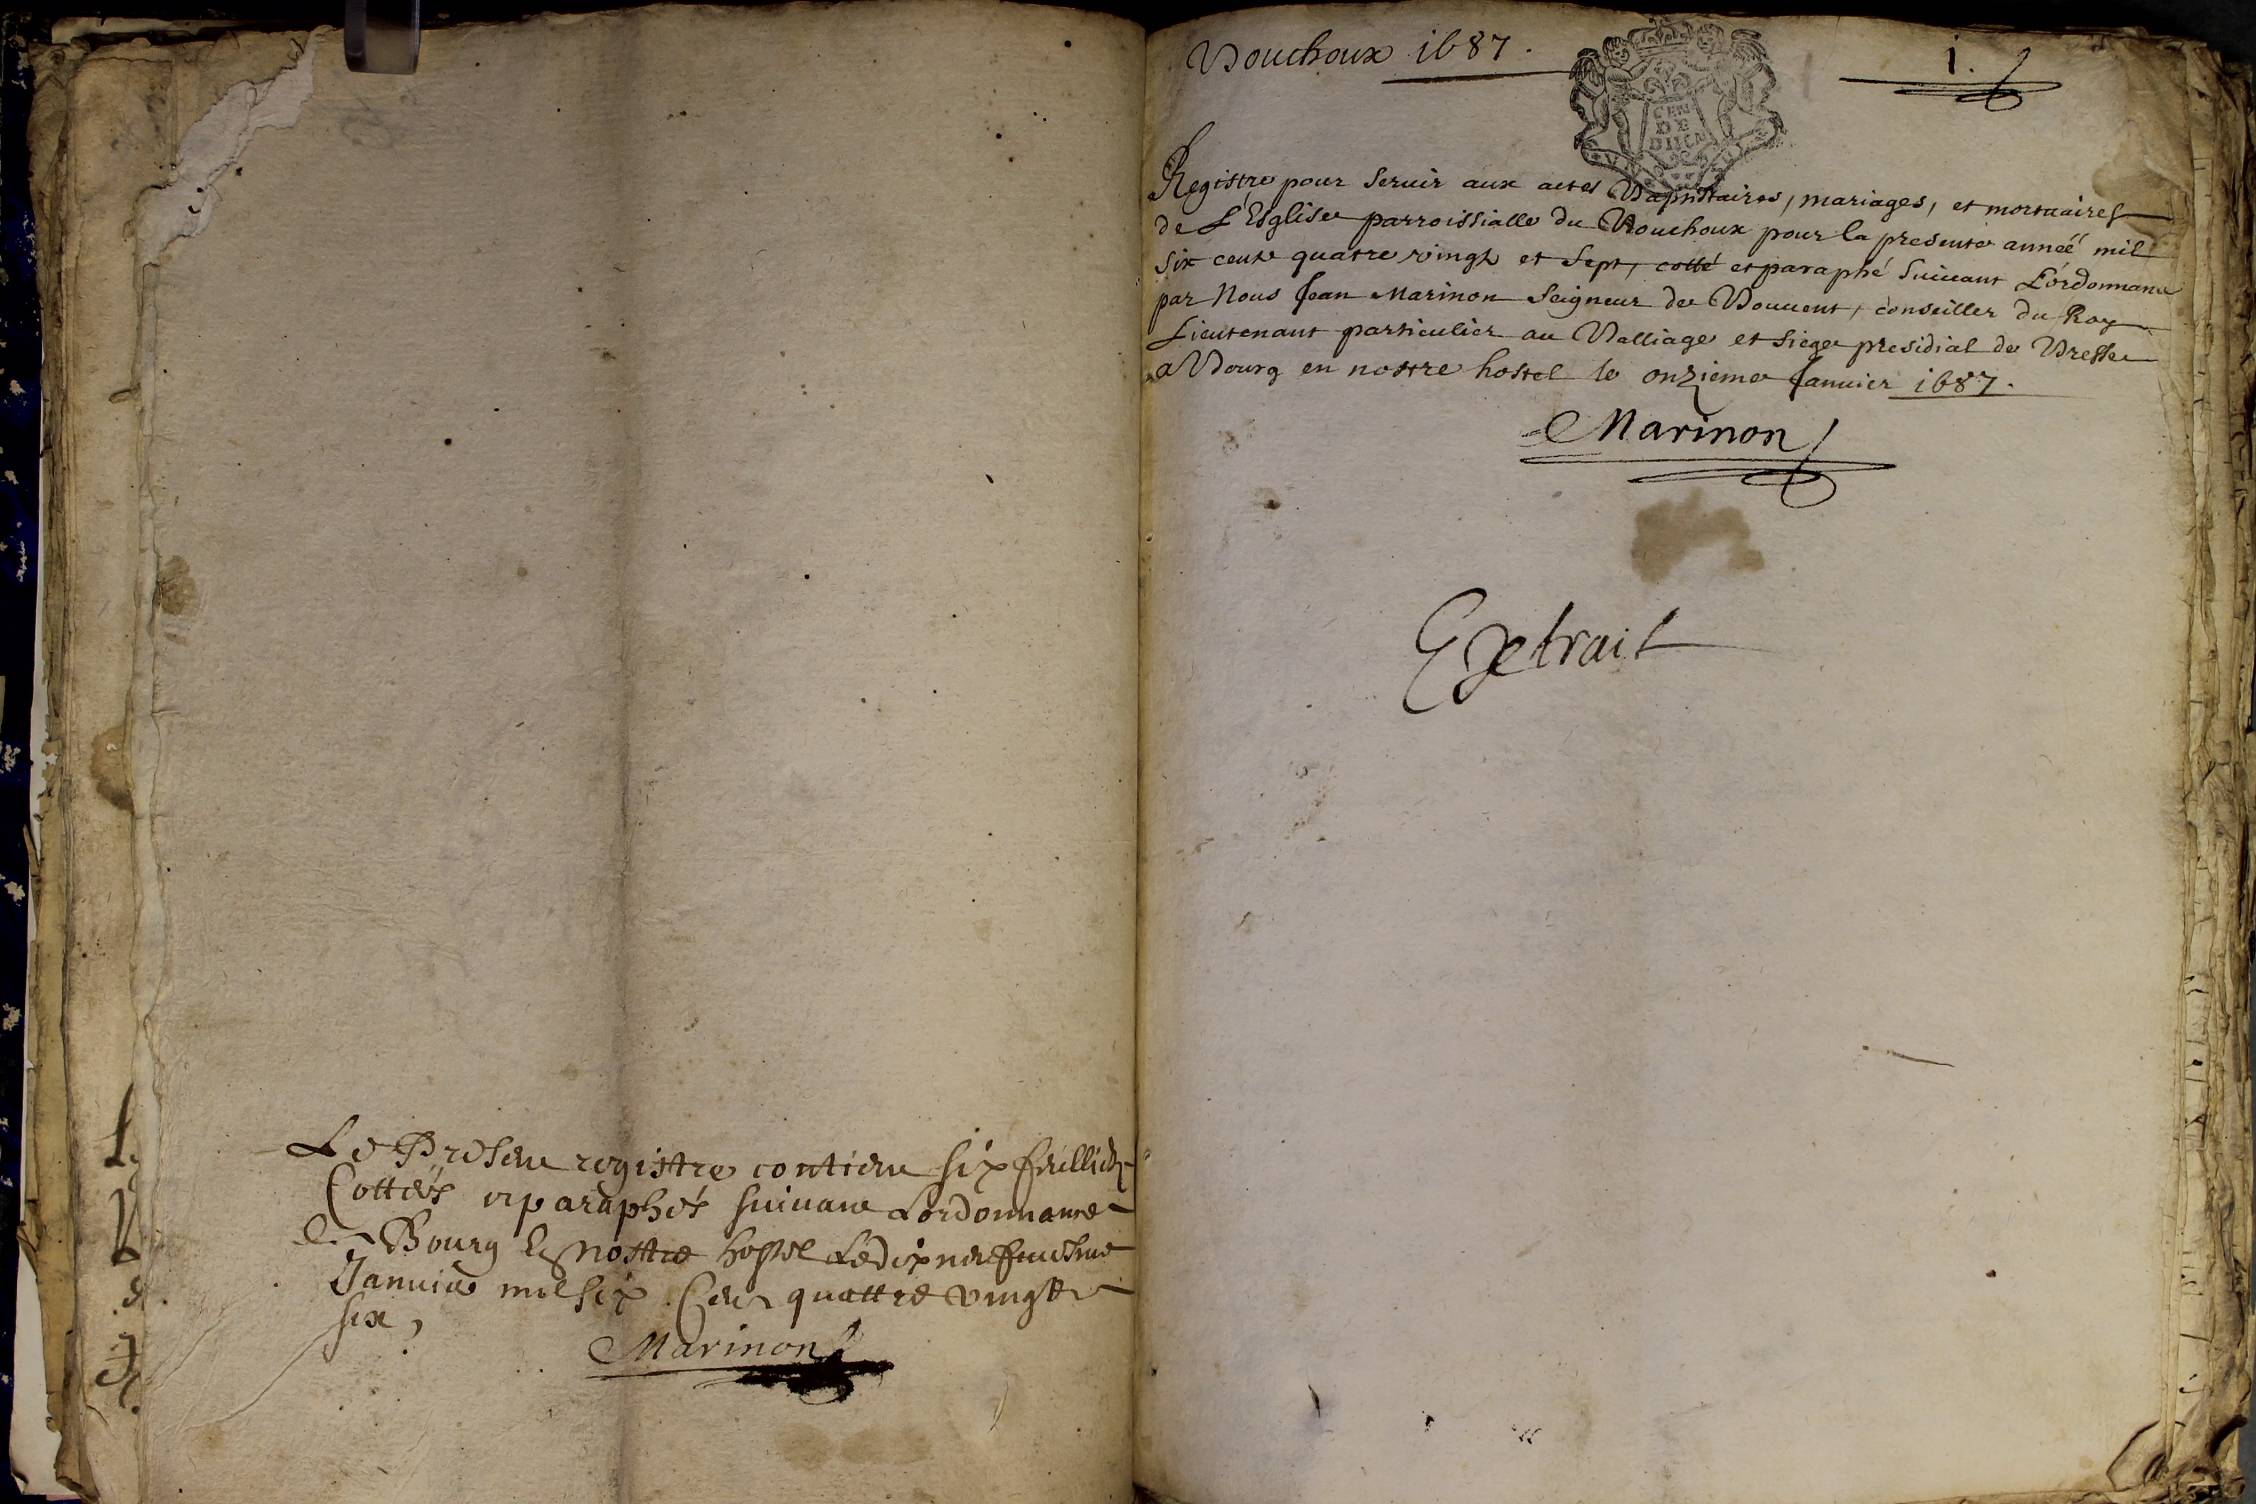 Le Present registre contient six feuillietz
Cottés et paraphés suivant Lordonnance
Bourg En nostre hostel Le dix neufviesme
Januier mil six Cent quattre vingt
six,
Marinon
Bouchoux 1687.
1.
GEN
DE
DIION
Registre pour seruir aux actes Baptistaires, mariages, et mortuaires
de L'Esglise parroissialle du Bouchoux pour la presente année mil
six cents quatre vingt et sept, cotté et paraphé suiuant L'ordonnance
par Nous Jean Marinon seigneur de Bouuent, conseiller du Roy
Lieutenant particulier au Balliage et siege presidial de Bresse
a Bourg en nostre hostel le onzieme Januier 1687.
Marinon
Extrait